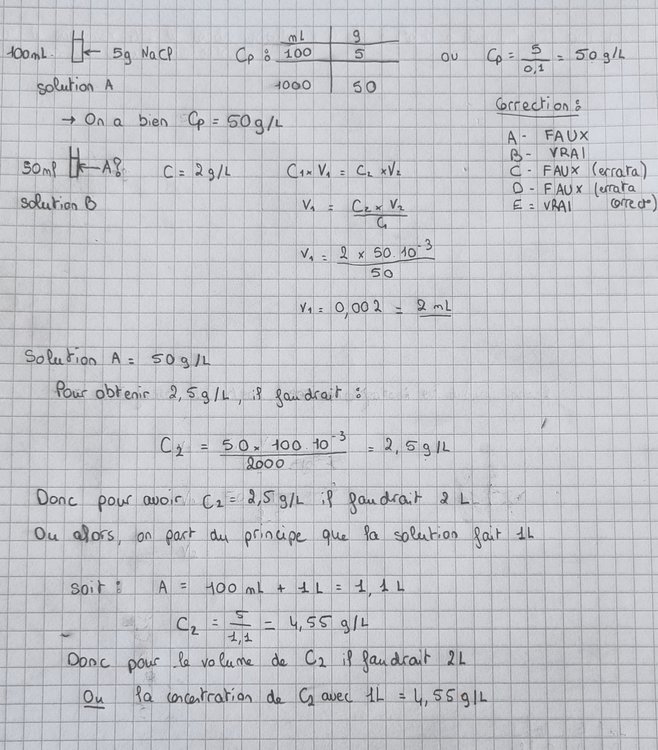 mL g
100mL ← 5g NaCl Cp : 100 5 ou Cp = 5/0,1 = 50g/L
solution A 1000 50
→ On a bien Cp = 50g/L
Correction :
A - FAUX
B - VRAI
C - FAUX (errata)
D - FAUX (errata
E = VRAI correct°)
50ml ← A? C = 2g/L C1 x V1 = C2 x V2
solution B V1 = C2 x V2 / C1
V1 = 2 x 50.10^-3 / 50
V1 = 0,002 = 2 mL
Solution A = 50g/L
Pour obtenir 2,5g/L, il faudrait :
C2 = 50 x 100.10^-3 / 2000 = 2,5g/L
Donc pour avoir C2 = 2,5g/L il faudrait 2L
Ou alors, on part du principe que la solution fait 1L
soit : A = 100 mL + 1L = 1,1L
C2 = 5/1,1 = 4,55 g/L
Donc pour le volume de C2 il faudrait 2L
Ou la concentration de C2 avec 1L = 4,55g/L